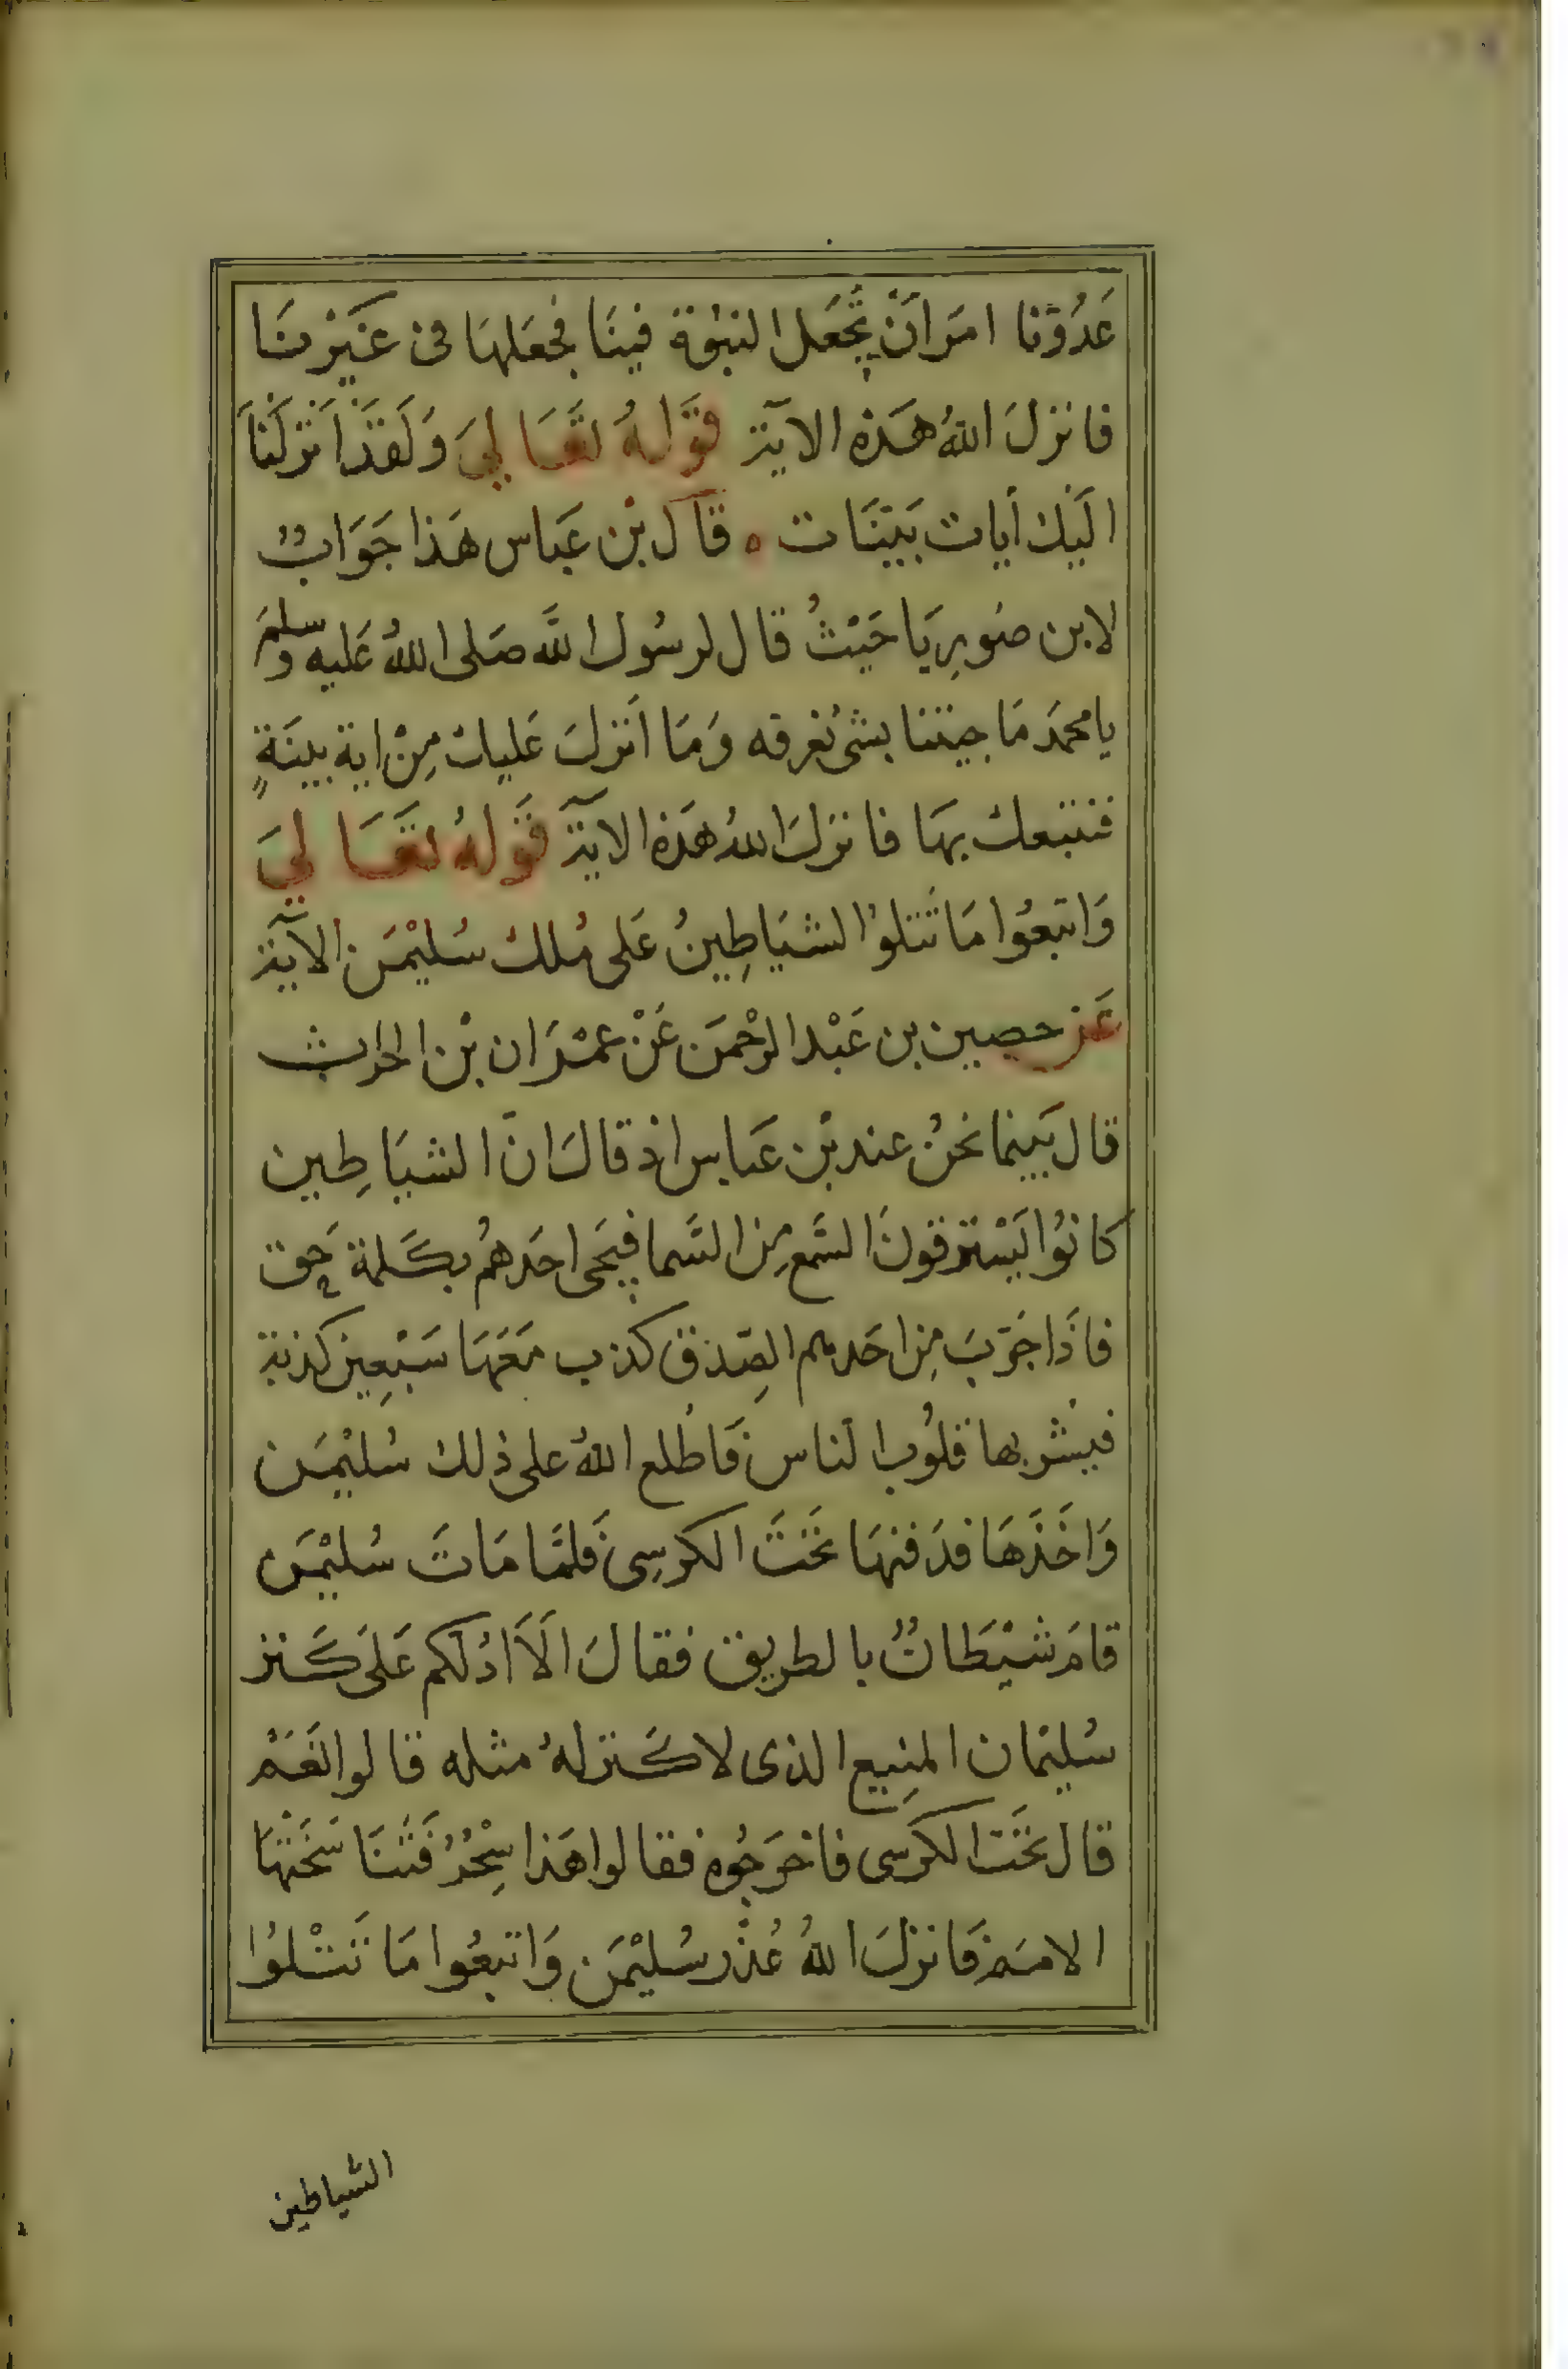 عَدُوّنا امَرَ اَنّ يجَّعَل النبوة فينَا فجعَلهَا فى غَيْرِنَا
فانزلَ اللهُ هَذه الآية قَوَلهُ تعَالىَ وَلَقَدَ اَنْزَلنَاَ
الَيك اَيات بَيّنَات ه قاَل بْن عَبَاس هَذا جَوَابٌ
لابن صُورِيَا حَيْثُ قال لرسُول اللَّه صَلى اللهُ عَليه وسلمَ
يا محمدَ مَا جيتنا بشى نَعرفه وَمَا اَنزلَ عَليك مِنْ اية بينَةٍ
فنتبعك بهَا فانزلَ اللهُ هَذه الآية قَوَلهُ تعَالىَ
وَاتبعُوا مَا تَتلوُا الشيَاطِينُ عَلى مُلك سُليْمَن الآية
عَن حصين بن عَبْد الرحْمَن عَنْ عمْرَان بْن الحارث
قال بَينما نحنُ عند بْن عَباس اذ قالَ انّ الشيَاطِين
كانوُا يَسْترقونَ السَّمع مِن السَّما فيَجى احَدهُم بكَلمة حَق
فاذَا جَرّبَ مِن احَدهم الصِدق كذب مَعَهَا سَبْعِين كذبة
فيشربها قلوُب الناس فَاطْلع اللهُ على ذلك سُليْمَن
وَاخَذَهَا فدَفنهَا تَحْتَ الكرسِى فَلمَّا مَاتَ سُليْمَن
قامَ شَيْطَانٌ بالطريق فقالَ الَاَ ادُلكم عَلَى كَنز
سُليْمان المنِيع الذى لا كَنز لهُ مثله قالوا نَعَمْ
قال تَحَت الكرسى فاخرَجُوه فقالوا هَذا سِحْرٌ فَتَنَا سَخَتْهَا
الامَم فَانزلَ اللهُ عُذْرَ سُليْمَن وَاتبعُوا مَا تَتْلوُا
الشياطين